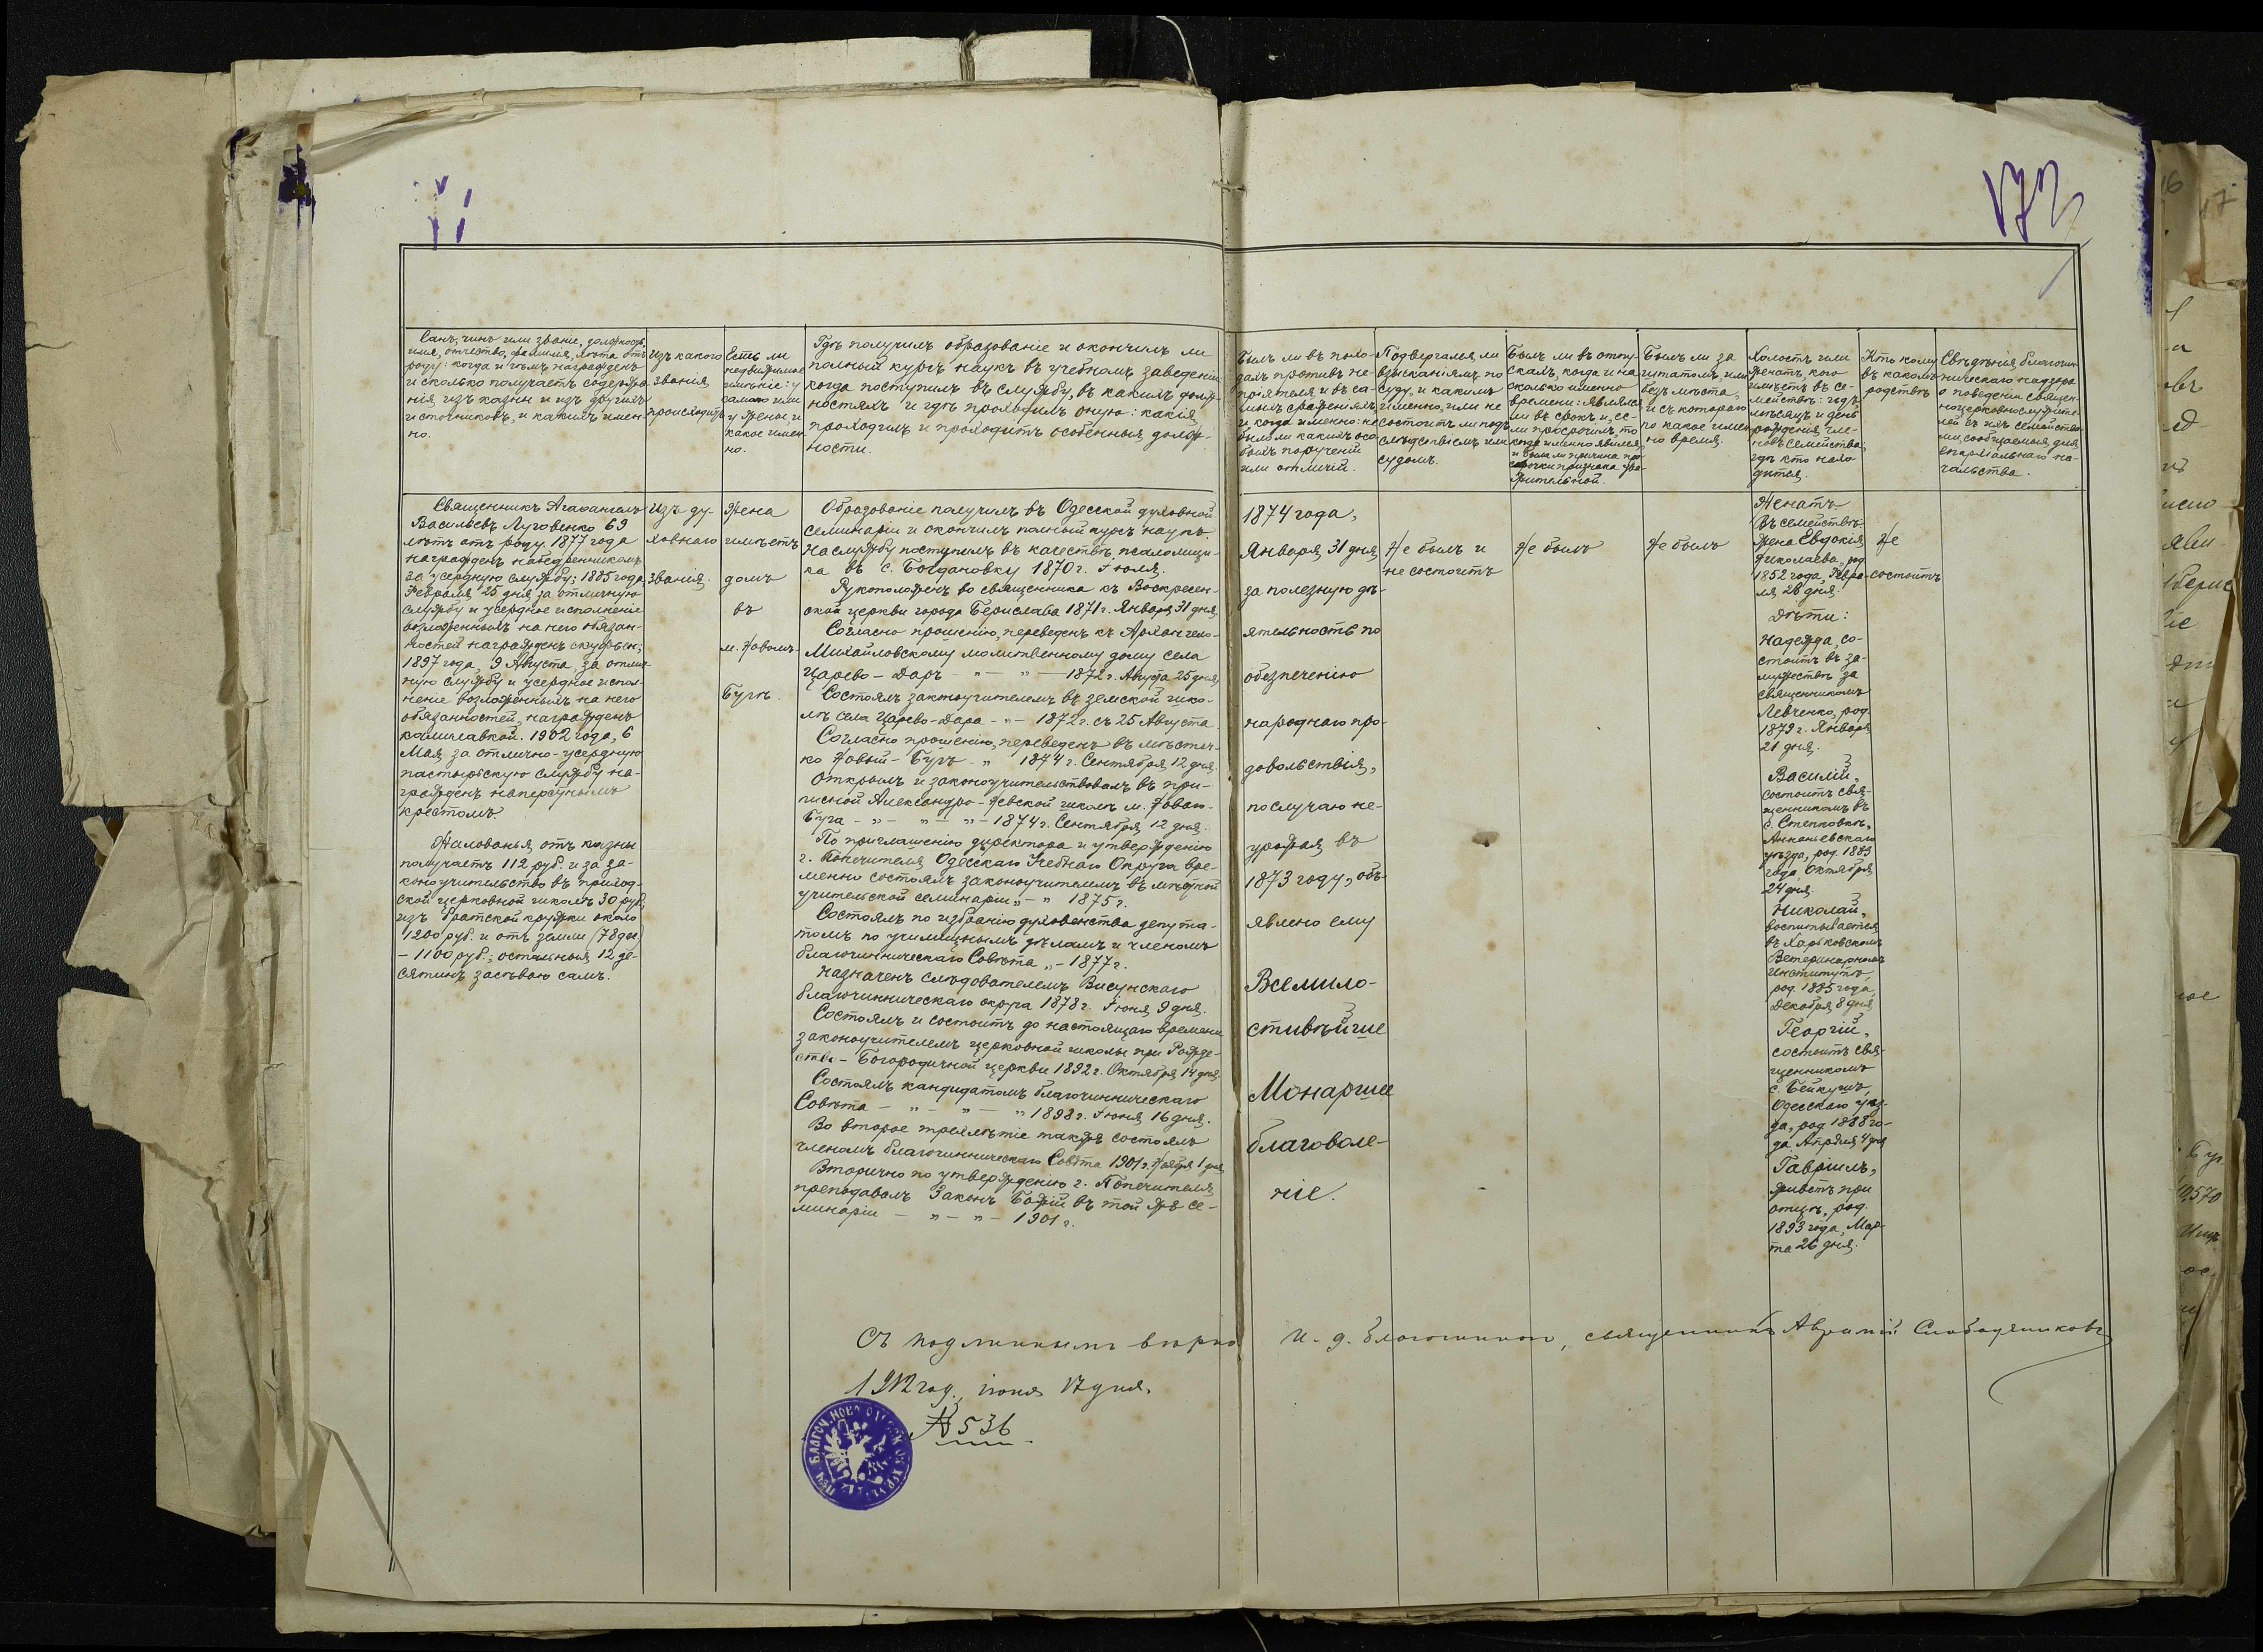 172
Санъ, чинъ или званіе, должность,
имя, отчество, фамилія, лѣта отъ
роду: когда и чѣмъ награжденъ
и сколько получаетъ содержа-
нія изъ казны и изъ другихъ
источниковъ, и какихъ имен-
но.
Изъ какого
званія
происходитъ
Есть ли
недвижимое
имѣніе: у
самого или
у жены, и
какое имен
но.
Гдѣ получилъ образованіе и окончилъ ли
полный курсъ наукъ въ учебномъ заведеніи
когда поступилъ въ службу, въ какихъ долж-
ностяхъ и гдѣ проходилъ оную: какія
проходилъ и проходитъ особенныя долж-
ности.
Былъ ли въ похо-
дахъ противъ не-
пріятеля и въ са-
мыхъ сраженіяхъ
и когда именно: не
было ли какихъ осо
быхъ порученій
или отличій.
Подвергался ли
взысканіямъ по
суду, и какимъ
именно, или не
состоитъ ли подъ
слѣдствіемъ или
судомъ.
Былъ ли въ отпу-
скахъ, когда и на
сколько именно
времени: являлся
ли въ срокъ и, ес-
ли просрочилъ, то
когда именно явился,
и была ли причина про
срочки признана ува-
жительной.
Былъ ли за
штатомъ, или
безъ мѣста,
и съ котораго
по какое имен
но время.
Холостъ или
женатъ, кого
имѣетъ въ се-
мействѣ: годъ
мѣсяцъ и день
рожденія чле-
новъ семейства;
гдѣ кто нахо
дится.
Кто кому
въ какомъ
родствѣ
Свѣдѣнія благочин-
ническаго надзора
о поведеніи священ-
ноцерковнослужите-
лей съ ихъ семейства-
ми, сообщаемыя для
епархіальнаго на-
чальства.
Священникъ Агафангелъ
Васильевъ Луговенко 69
лѣтъ отъ роду. 1877 года
награжденъ набедренникомъ
за усердную службу; 1885 года
Февраля 25 дня за отличную
службу и усердное исполненіе
возложенныхъ на него обязан-
ностей награжденъ скуфьею;
1897 года, 9 Августа, за отлич-
ную службу и усердное испол-
неніе возложенныхъ на него
обязанностей, награжденъ
камилавкой. 1902 года, 6
Мая за отлично-усердную
пастырскую службу на-
гражденъ наперснымъ
крестомъ
Жалованья отъ казны
получаетъ 112 руб. и за за-
коноучительство въ приход-
ской церковной школѣ 30 руб.
изъ братской кружки около
1200 руб. и отъ земли (78 дес)
- 1100 руб.; остальныя 12 де-
сятинъ засѣваю самъ.
Изъ ду-
ховнаго
званія.
Жена
имѣетъ
домъ
въ
м. Новомъ
Бугѣ.
Образованіе получилъ въ Одесской духовной
семинаріи и окончилъ полный курсъ наукъ.
На службу поступилъ въ качествѣ псаломщи-
ка въ с. Богдановку 1870 г. Іюля.
Рукоположенъ во священника къ Воскресен-
ской церкви города Берислава 1871 г. Января 31 дня
Согласно прошенію, переведенъ къ Архангело-
Михайловскому молитвенному дому села
Царево-Даръ - " - " - 1872 г. Августа 25 дня
Состоялъ законоучителемъ въ земской шко-
лѣ села Царево-Дара - " - 1872 г. съ 25 Августа
Согласно прошенію, переведенъ въ мѣстеч-
ко Новый-Бугъ - " 1874 г. Сентября 12 дня.
Открылъ и законоучительствовалъ въ при-
писной Александро-Невской школѣ м. Новаго-
Буга - " - " - " - 1874 г. Сентября 12 дня.
По приглашенію директора и утвержденію
г. Попечителя Одесскаго Учебнаго Округа вре-
менно состоялъ законоучителемъ въ мѣстной
учительской семинаріи " - " 1875 г.
Состоялъ по избранію духовенства депута-
томъ по училищнымъ дѣламъ и членомъ
благочинническаго Совѣта " - 1877 г.
Назначенъ слѣдователемъ Висунскаго
благочинническаго округа 1878 г. Іюня 9 дня.
Состоялъ и состоитъ до настоящаго времени
законоучителемъ церковной школы при Рожде-
ство-Богородичной церкви 1892 г. Октября 14 дня.
Состоялъ кандидатомъ благочинническаго
Совѣта - " - " - " 1898 г. Іюня 16 дня.
Во второе трехлѣтіе также состоялъ
членомъ благочинническаго Совѣта 1901 г. Ноября 1 дня
Вторично по утвержденію г. Попечителя
преподавалъ Законъ Божій въ той же се-
минаріи - " - " - 1901 г.
1874 года,
Января 31 дня
за полезную дѣ-
ятельность по
обезпеченію
народнаго про-
довольствія,
по случаю не-
урожая въ
1873 году, объ-
явлено ему
Всемило-
стивѣйшее
Монаршее
благоволе-
ніе.
Не былъ и
не состоитъ
Не былъ
Не былъ
Женатъ.
Въ семействѣ:
Жена Евдокія
Николаева, род.
1852 года, Февра-
ля 28 дня.
Дѣти:
Надежда, со-
стоитъ въ за-
мужествѣ за
священникомъ
Левченко, род.
1879 г. Января
21 дня.
Василій,
состоитъ свя-
щенникомъ въ
с. Степковкѣ,
Ананьевскаго
уѣзда, род. 1883
года, Октября
24 дня
Николай,
воспитывается
въ Харьковскомъ
Ветеринарномъ
Институтѣ,
род. 1885 года,
Декабря 8 дня
Георгій,
состоитъ свя-
щенникомъ
с. Бейкушъ,
Одесскаго уѣз-
да, род. 1888 го-
да Апрѣля 4 дня
Гавріилъ,
живетъ при
отцѣ, род.
1893 года, Мар-
та 26 дня.
Не
состоитъ
Съ подлиннымъ вѣрно И. д. благочиннаго, священникъ Аврамій Слободяниковъ
1912 год. іюня 17 дня.
№ 536